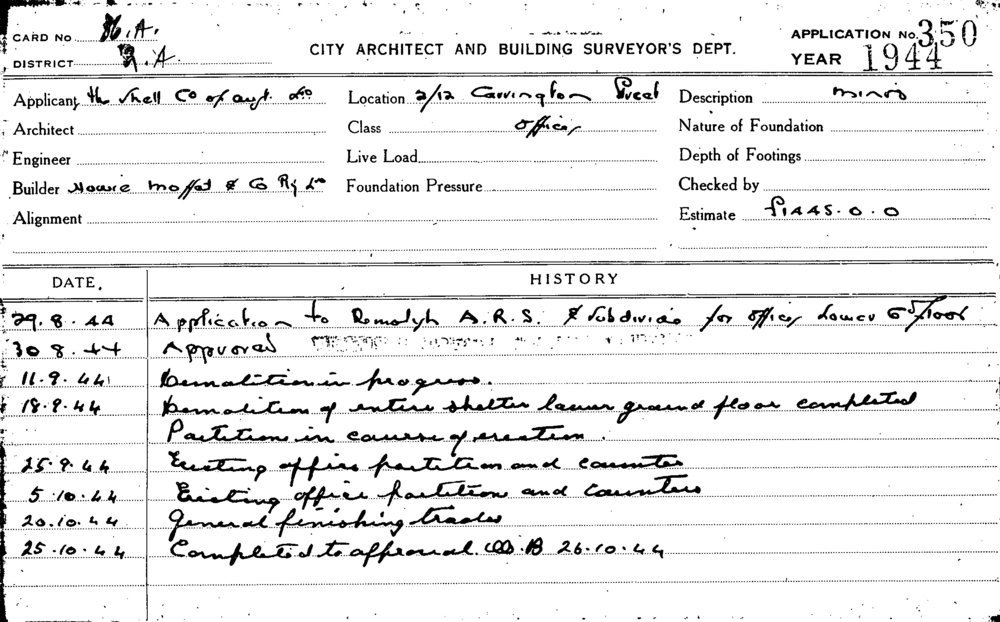 CARD No H.A.
DISTRICT R.A.
CITY ARCHITECT AND BUILDING SURVEYOR'S DEPT.
APPLICATION No. 350
YEAR 1944
Applicant the Shell Co of aust. Ltd
Location 2/12 Carrington Street
Description minor
Architect
Class offices
Nature of Foundation
Engineer
Live Load
Depth of Footings
Builder Howie Moffat & Co Pty Ltd
Foundation Pressure
Checked by
Alignment
Estimate £1445.0.0
DATE.
HISTORY
29.8.44 Application to Demolish A.R.S. & subdivide for offices Lower Gd floor
30 8.44 Approved
11.9.44 Demolition in progress.
18.9.44 Demolition of entire shelter lower ground floor completed
Partition in course of erection.
25.9.44 Erecting office partition and counter
5.10.44 Erecting office partition and counters
20.10.44 General finishing trades
25.10.44 Completed to approval. 26.10.44